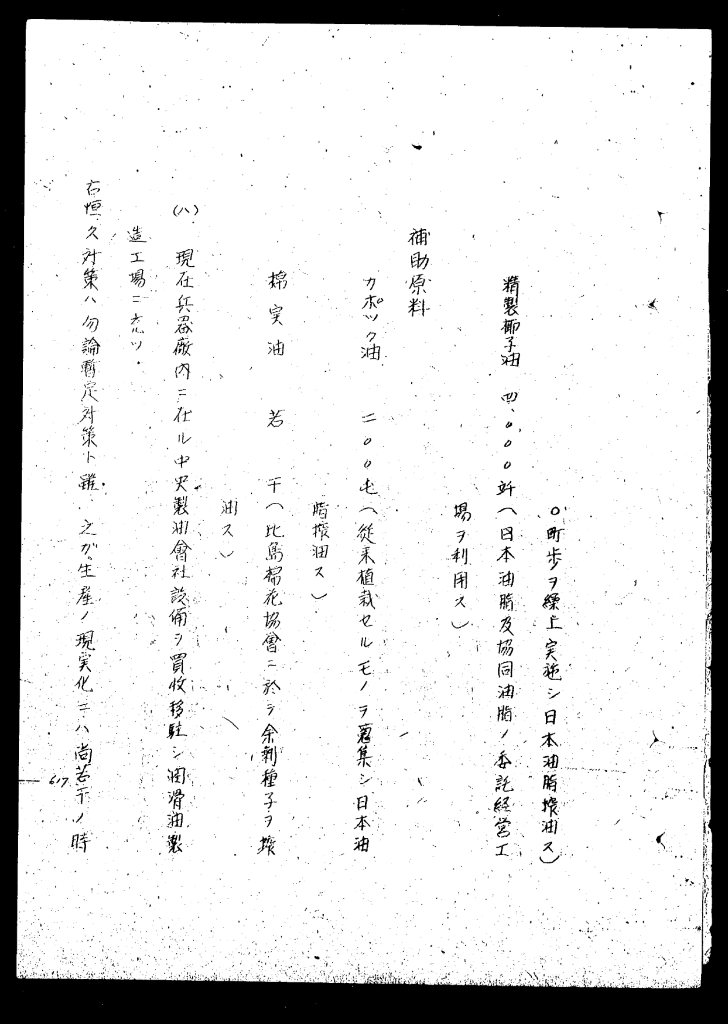 〇町歩ヲ繰上実施シ日本油脂搾油ス)
精製椰子油 四、〇〇〇竏(日本油脂及協同油脂ノ委託経営工
場ヲ利用ス)
補助原料
カポック油 二〇〇屯(従来植栽セルモノヲ蒐集シ日本油
脂搾油ス)
棉実油 若干(比島棉花協會ニ於テ余剰種子ヲ搾
油ス)
(八) 現在兵器廠内ニ在ル中央製油會社設備ヲ買收移駐シ潤滑油製
造工場ニ充ツ.
右恒久対策ハ勿論暫定対策ト雖. 之ガ生産ノ現実化ニハ尚若干ノ時
617